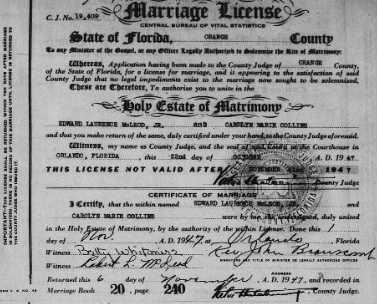 Marriage License
C. J. No. 19,409
CENTRAL BUREAU OF VITAL STATISTICS
State of Florida, ORANGE County
To any Minister of the Gospel, or any Officer Legally Authorized to Solemnize the Rite of Matrimony:
Whereas, Application having been made to the County Judge of ORANGE County,
of the State of Florida, for a license for marriage, and it appearing to the satisfaction of said
County Judge that no legal impediments exist to the marriage now sought to be solemnized,
These are Therefore, To authorize you to unite in the
Holy Estate of Matrimony
EDWARD LAURENCE McLEOD, JR. and CAROLYN MAURIE COLLINS
and that you make return of the same, duly certified under your hand to the County Judge aforesaid.
Witness, my name as County Judge, and the seal of said Court at the Courthouse in
ORLANDO, FLORIDA, this 22nd day of OCTOBER A. D. 1947
THIS LICENSE NOT VALID AFTER 1947
County Judge
CERTIFICATE OF MARRIAGE
I Certify, that the within named EDWARD LAURENCE McLEOD, JR. and
CAROLYN MAURIE COLLINS were by me, the undersigned, duly united
in the Holy Estate of Matrimony, by the authority of the within License. Done this 1
day of Nov A. D. 1947, at Orlando, Florida
Witness Betty Rev. John
Witness Robert L. McLeod
Returned this 6 day of November A. D. 1947, and recorded in
Marriage Book 20, page 240 County Judge